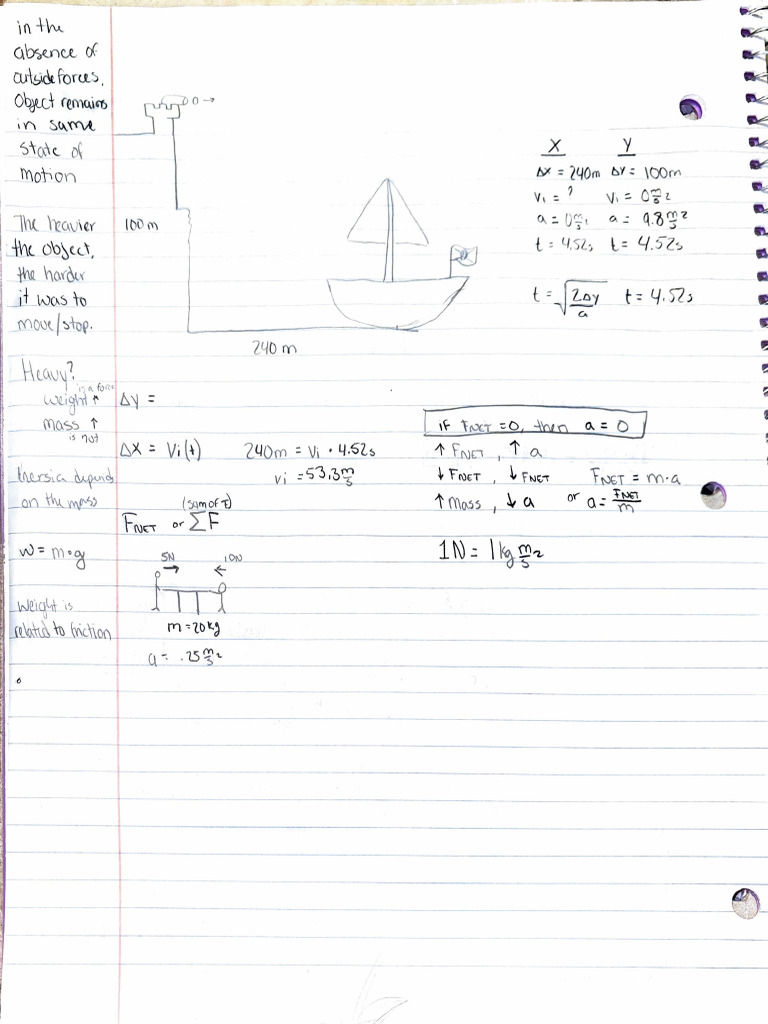 in the
absence of
outside forces,
Object remains
in same
State of
motion
The heavier
the object,
the harder
it was to
move/stop.
Heavy?
is a force
weight ↑
mass ↑
is not
Inersia depends
on the mass
w = m·g
Weight is
related to friction
100m
240 m
X Y
Δx = 240m Δy = 100m
Vi = ? Vi = 0 m/s²
a = 0 m/s² a = 9.8 m/s²
t = 4.52s t = 4.52s
t = √(2Δy/a) t = 4.52s
Δy =
Δx = Vi(t) 240m = Vi · 4.52s
Vi = 53.3 m/s
(sum of F)
FNET or ΣF
5N 10N
m = 20kg
a = .25 m/s²
IF FNET = 0, then a = 0
↑ FNET, ↑ a
↓ FNET, ↓ FNET FNET = m·a
↑ mass, ↓ a or a = FNET/m
1N = 1kg m/s²